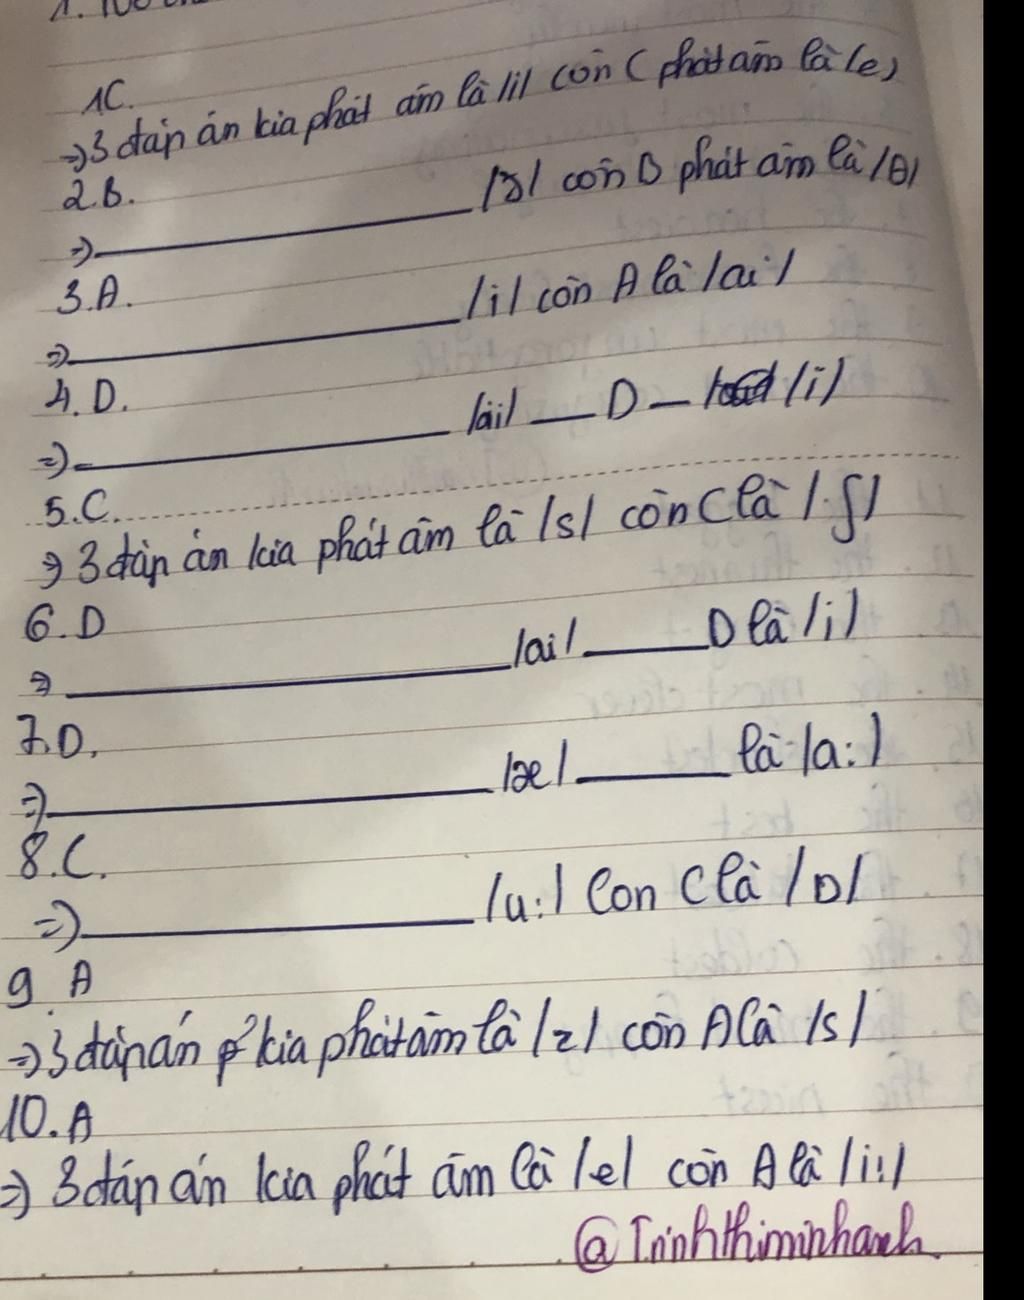 1C.
=> 3 đáp án kia phát âm là /i/ còn C phát âm là /e/
2.B.
=> ________ /ð/ còn B phát âm là /θ/
3.A.
=> ________ /i/ còn A là /ai/
4.D.
=> ________ /ai/ __ D _ /i/
5.C.
=> 3 đáp án kia phát âm là /s/ còn C là /ʃ/
6.D
=> ________ /ai/ ____ D là /i/
7.D.
=> ________ /æ/ ____ là /a:/
8.C.
=> ________ /u:/ Còn C là /ɒ/
9. A
=> 3 đáp án kia phát âm là /z/ còn A là /s/
10.A
=> 3 đáp án kia phát âm là /e/ còn A là /i:/
@Trinhthiminhanh